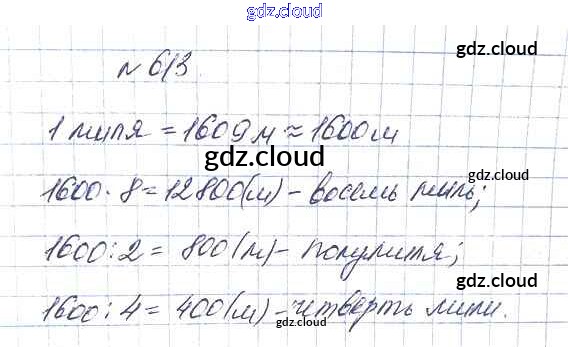 gdz.cloud
gdz.cloud
№ 613
gdz.cloud
1 миля = 1609 м ≈ 1600 м
gdz.cloud
1600 · 8 = 12800 (м) – восемь миль;
1600 : 2 = 800 (м) – полумиля;
gdz.cloud
1600 : 4 = 400 (м) – четверть мили.
gdz.cloud